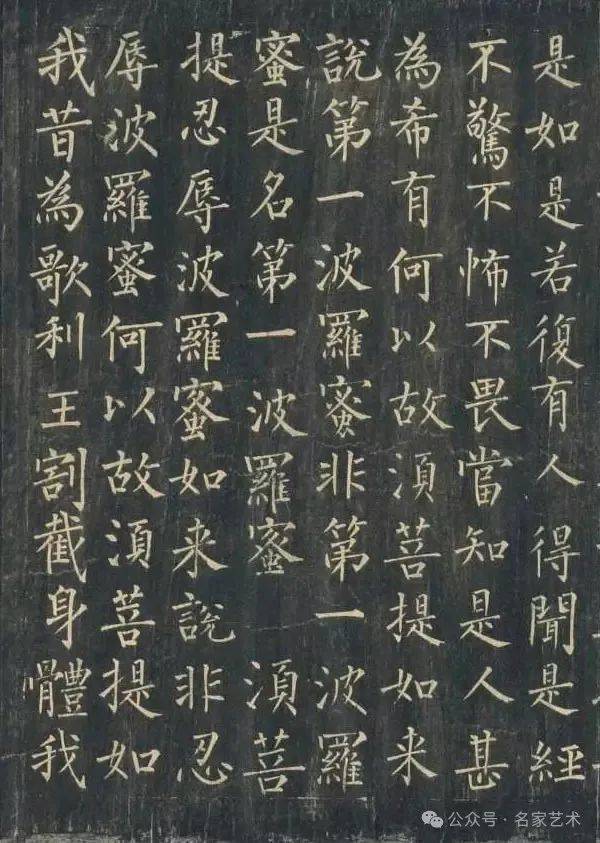 是如是若復有人得聞是經
不驚不怖不畏當知是人甚
為希有何以故湏菩提如来
說第一波羅蜜非第一波羅
蜜是名第一波羅蜜 湏菩
提忍辱波羅蜜如来說非忍
辱波羅蜜何以故湏菩提如
我昔為歌利王割截身體我
公众号·名家艺术